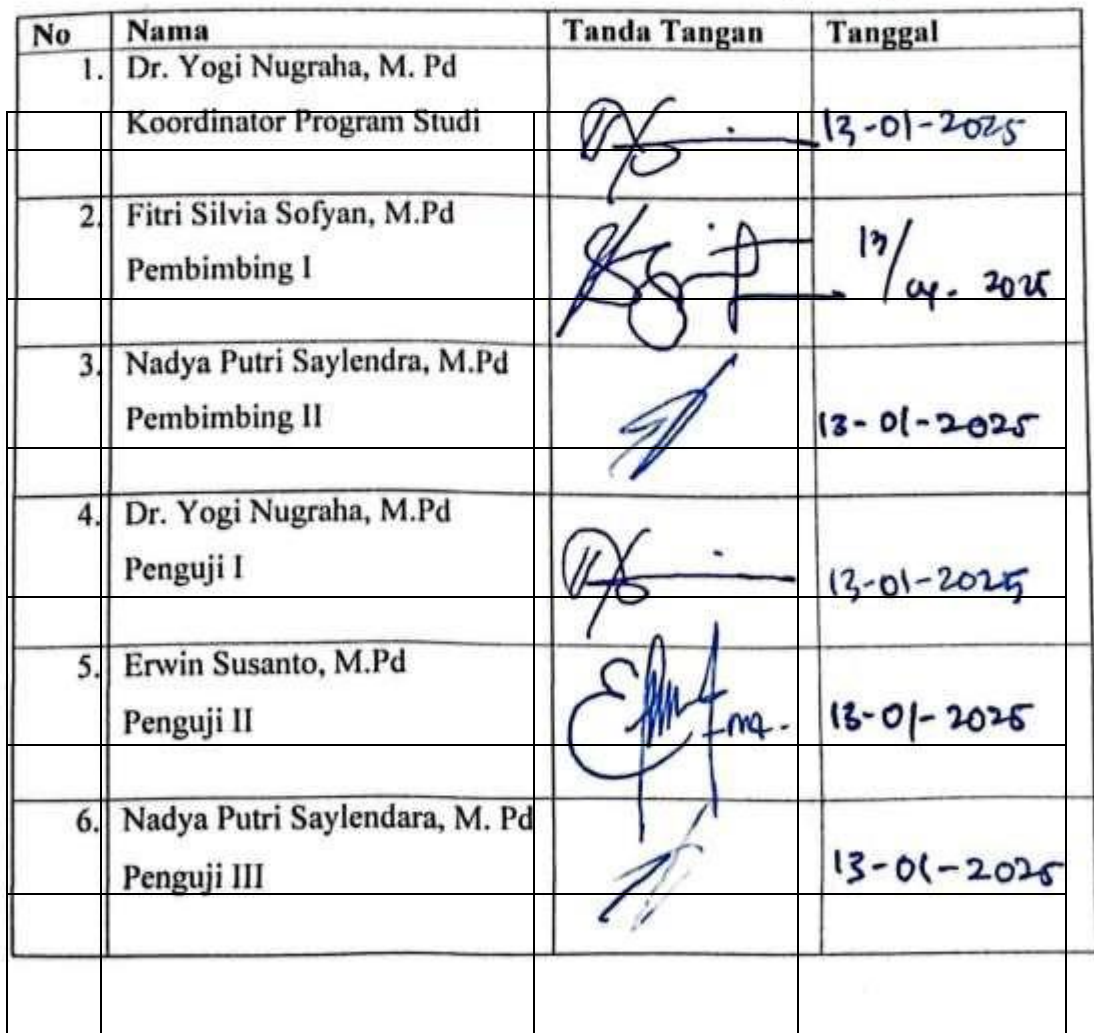 No Nama Tanda Tangan Tanggal
1. Dr. Yogi Nugraha, M. Pd
Koordinator Program Studi 13-01-2025
2. Fitri Silvia Sofyan, M.Pd
Pembimbing I 13/ 2025
3. Nadya Putri Saylendra, M.Pd
Pembimbing II 13-01-2025
4. Dr. Yogi Nugraha, M.Pd
Penguji I 13-01-2025
5. Erwin Susanto, M.Pd
Penguji II 13-01-2025
6. Nadya Putri Saylendara, M. Pd
Penguji III 13-01-2025